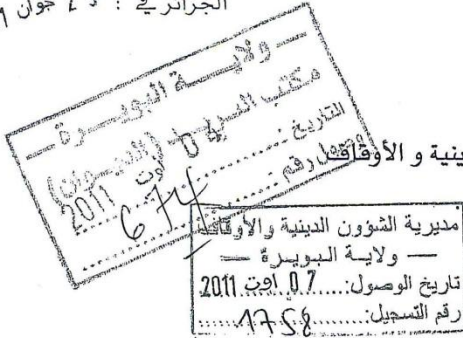 الجزائر في : جوان
— ولاية البويرة —
مكتب البريد (الديوان)
التاريخ : 04 اوت 2011
الوصول رقم : 674
ينية و الأوقاف
مديرية الشؤون الدينية والأوقاف
— ولاية البويرة —
تاريخ الوصول:..... 07 اوت 2011
رقم التسجيل:........1758........